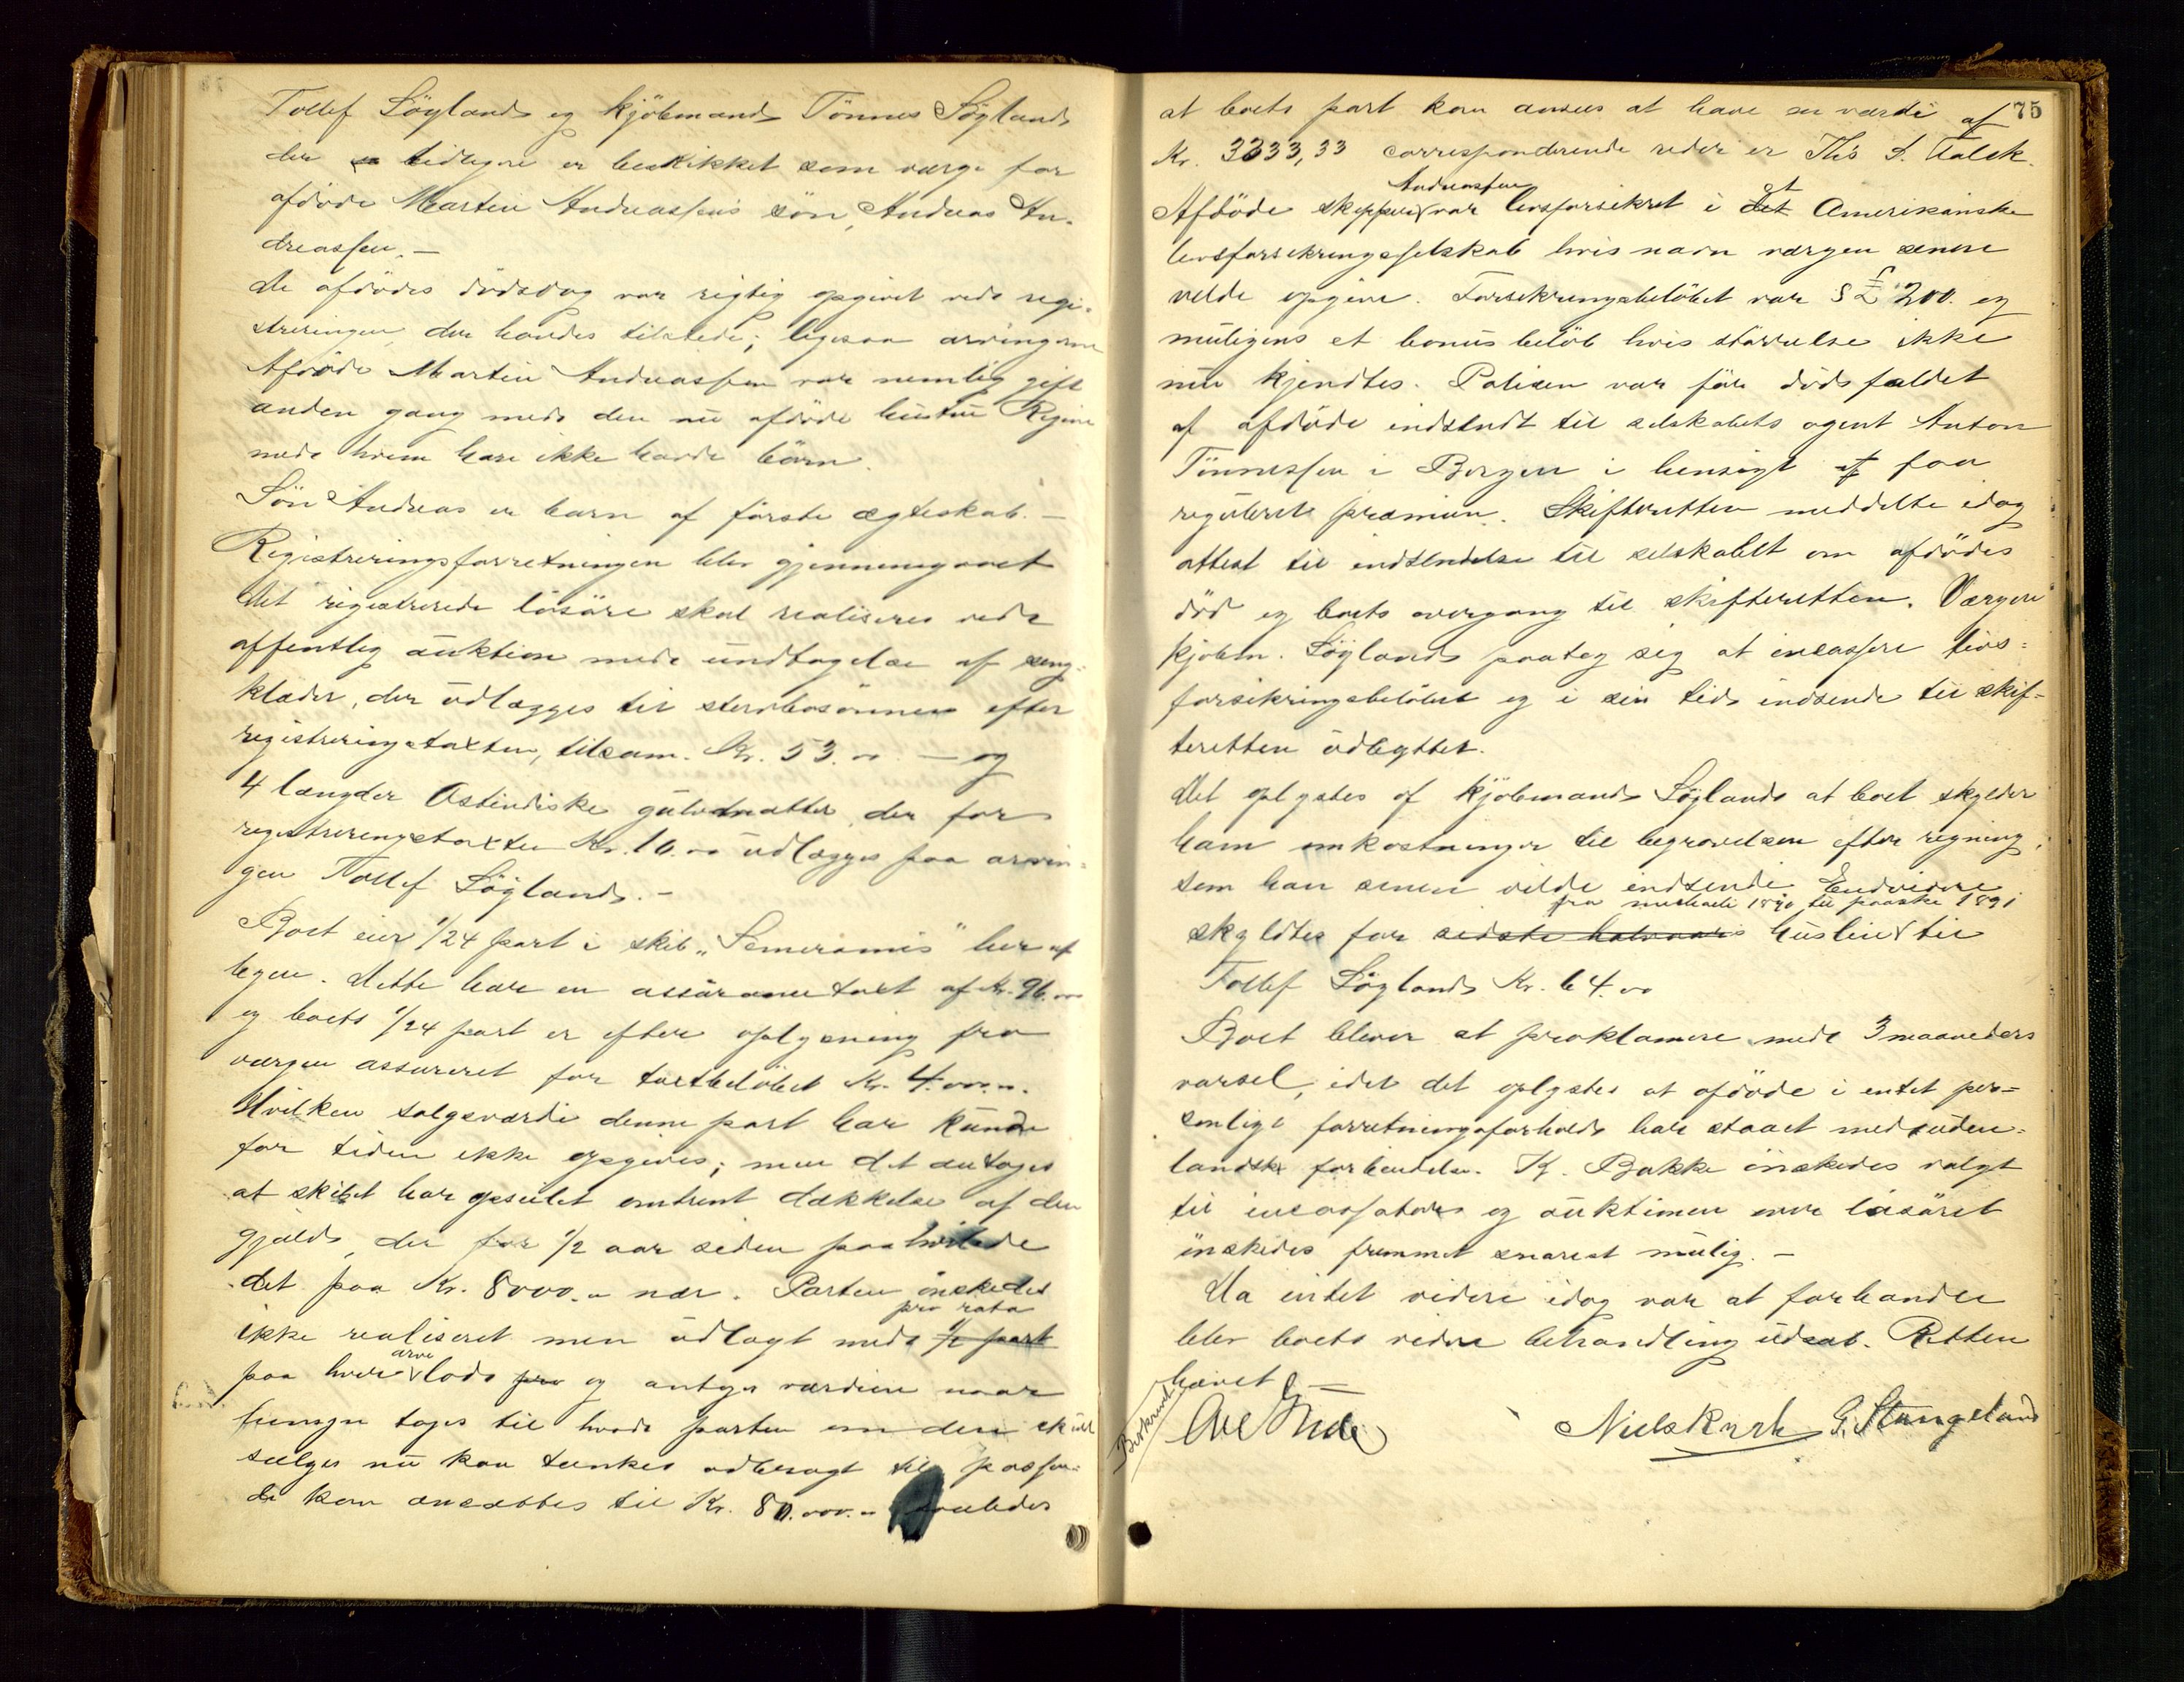 Tollef Søyland og kjøbmand Tønnes Søyland
der tidligere er beskikket som værge for
afdøde Martin Andreassens søn, Andreas An-
dreassen. —
De afdødes dødsdag var rigtig opgivet ved regi-
streringen, der havdes tilstede; ligesaa arvingerne
Afdøde Martin Andreassen var nemlig gift
anden gang med den nu afdøde hustru Regine
med hvem han ikke havde børn.
Søn Andreas er barn af første ægteskab. —
Registreringsforretningen blev gjennemgaaet
Det registrerede løsøre skal realiseres ved
offentlig auktion med undtagelse af seng-
klæder, der udlægges til stervbosønnen efter
registreringstaxten, tilsam. Kr. 53.00 — og
4 længder Ostindiske gulvmatter, der for
registreringstaxten Kr. 16.00 udlægges paa arvin-
gen Tollef Søyland. —
Boet eier 1/24 part i skib „Semiramis" her af
byen. Dette har en assurancetaxt af Kr. 96.000
og boets 1/24 part er efter oplysning fra
værgen assureret for taxtbeløbet Kr. 4.000.
Hvilken salgsværdi denne part har kunde
for tiden ikke opgives; men det antages
at skibet har opseilet omtrent dækkelse af den
gjæld, der for 1/2 aar siden paahvilede
det paa Kr. 8000.- nær. Parten ønskedes
pro rata
ikke realiseret men udlagt med 1/2 part
paa hver arvelod pro og antages værdien naar
hensyn tages til hvad parten om den skul
sælges nu kan tænkes udbragt til passen-
de kan ansættes til Kr. 80.000.- saaledes
75
at boets part kan ansees at have en værdi af
Kr. 3333,33 correspondrende reder er Ths S. Falck.
Andreassen
Afdøde skipper var livsforsikret i det et Amerikanske
livsforsikringsselskab hvis navn værgen senere
vilde opgive. Forsikringsbeløbet var £ 200. og
muligens et bonusbeløb hvis størrelse ikke
nu kjendtes. Policen var før dødsfaldet
af afdøde indsendt til selskabets agent Anton
Tønnessen i Bergen i hensigt at faa
reguleret præmien. Skifteretten meddelte idag
attest til indsendelse til selskabet om afdødes
død og boets overgang til skifteretten. Værgen
kjøbm. Søyland paatog sig at incassere livs-
forsikringsbeløbet og i sin tid indsende til skif-
teretten udbyttet.
Det oplystes af kjøbmand Søyland at boet skylder
ham omkostninger til begravelsen efter regning,
som han senere vilde indsende. Endvidere
fra michaeli 1890 til paaske 1891
skyldtes for sidste halvaar husleie til
Tollef Søyland Kr. 64.00
Boet bliver at proklamere med 3 maaneders
varsel, idet det oplystes at afdøde i intet per-
sonlige forretningsforhold har staaet med uden-
landsk forbindelse. K. Bakke ønskedes valgt
til incassator og auktionen over løsøret
ønskedes fremmet snarest mulig. —
Da intet videre idag var at forhandle
blev boets videre behandling udsat. Retten
hævet. —
Niels Kirk G. Stangeland